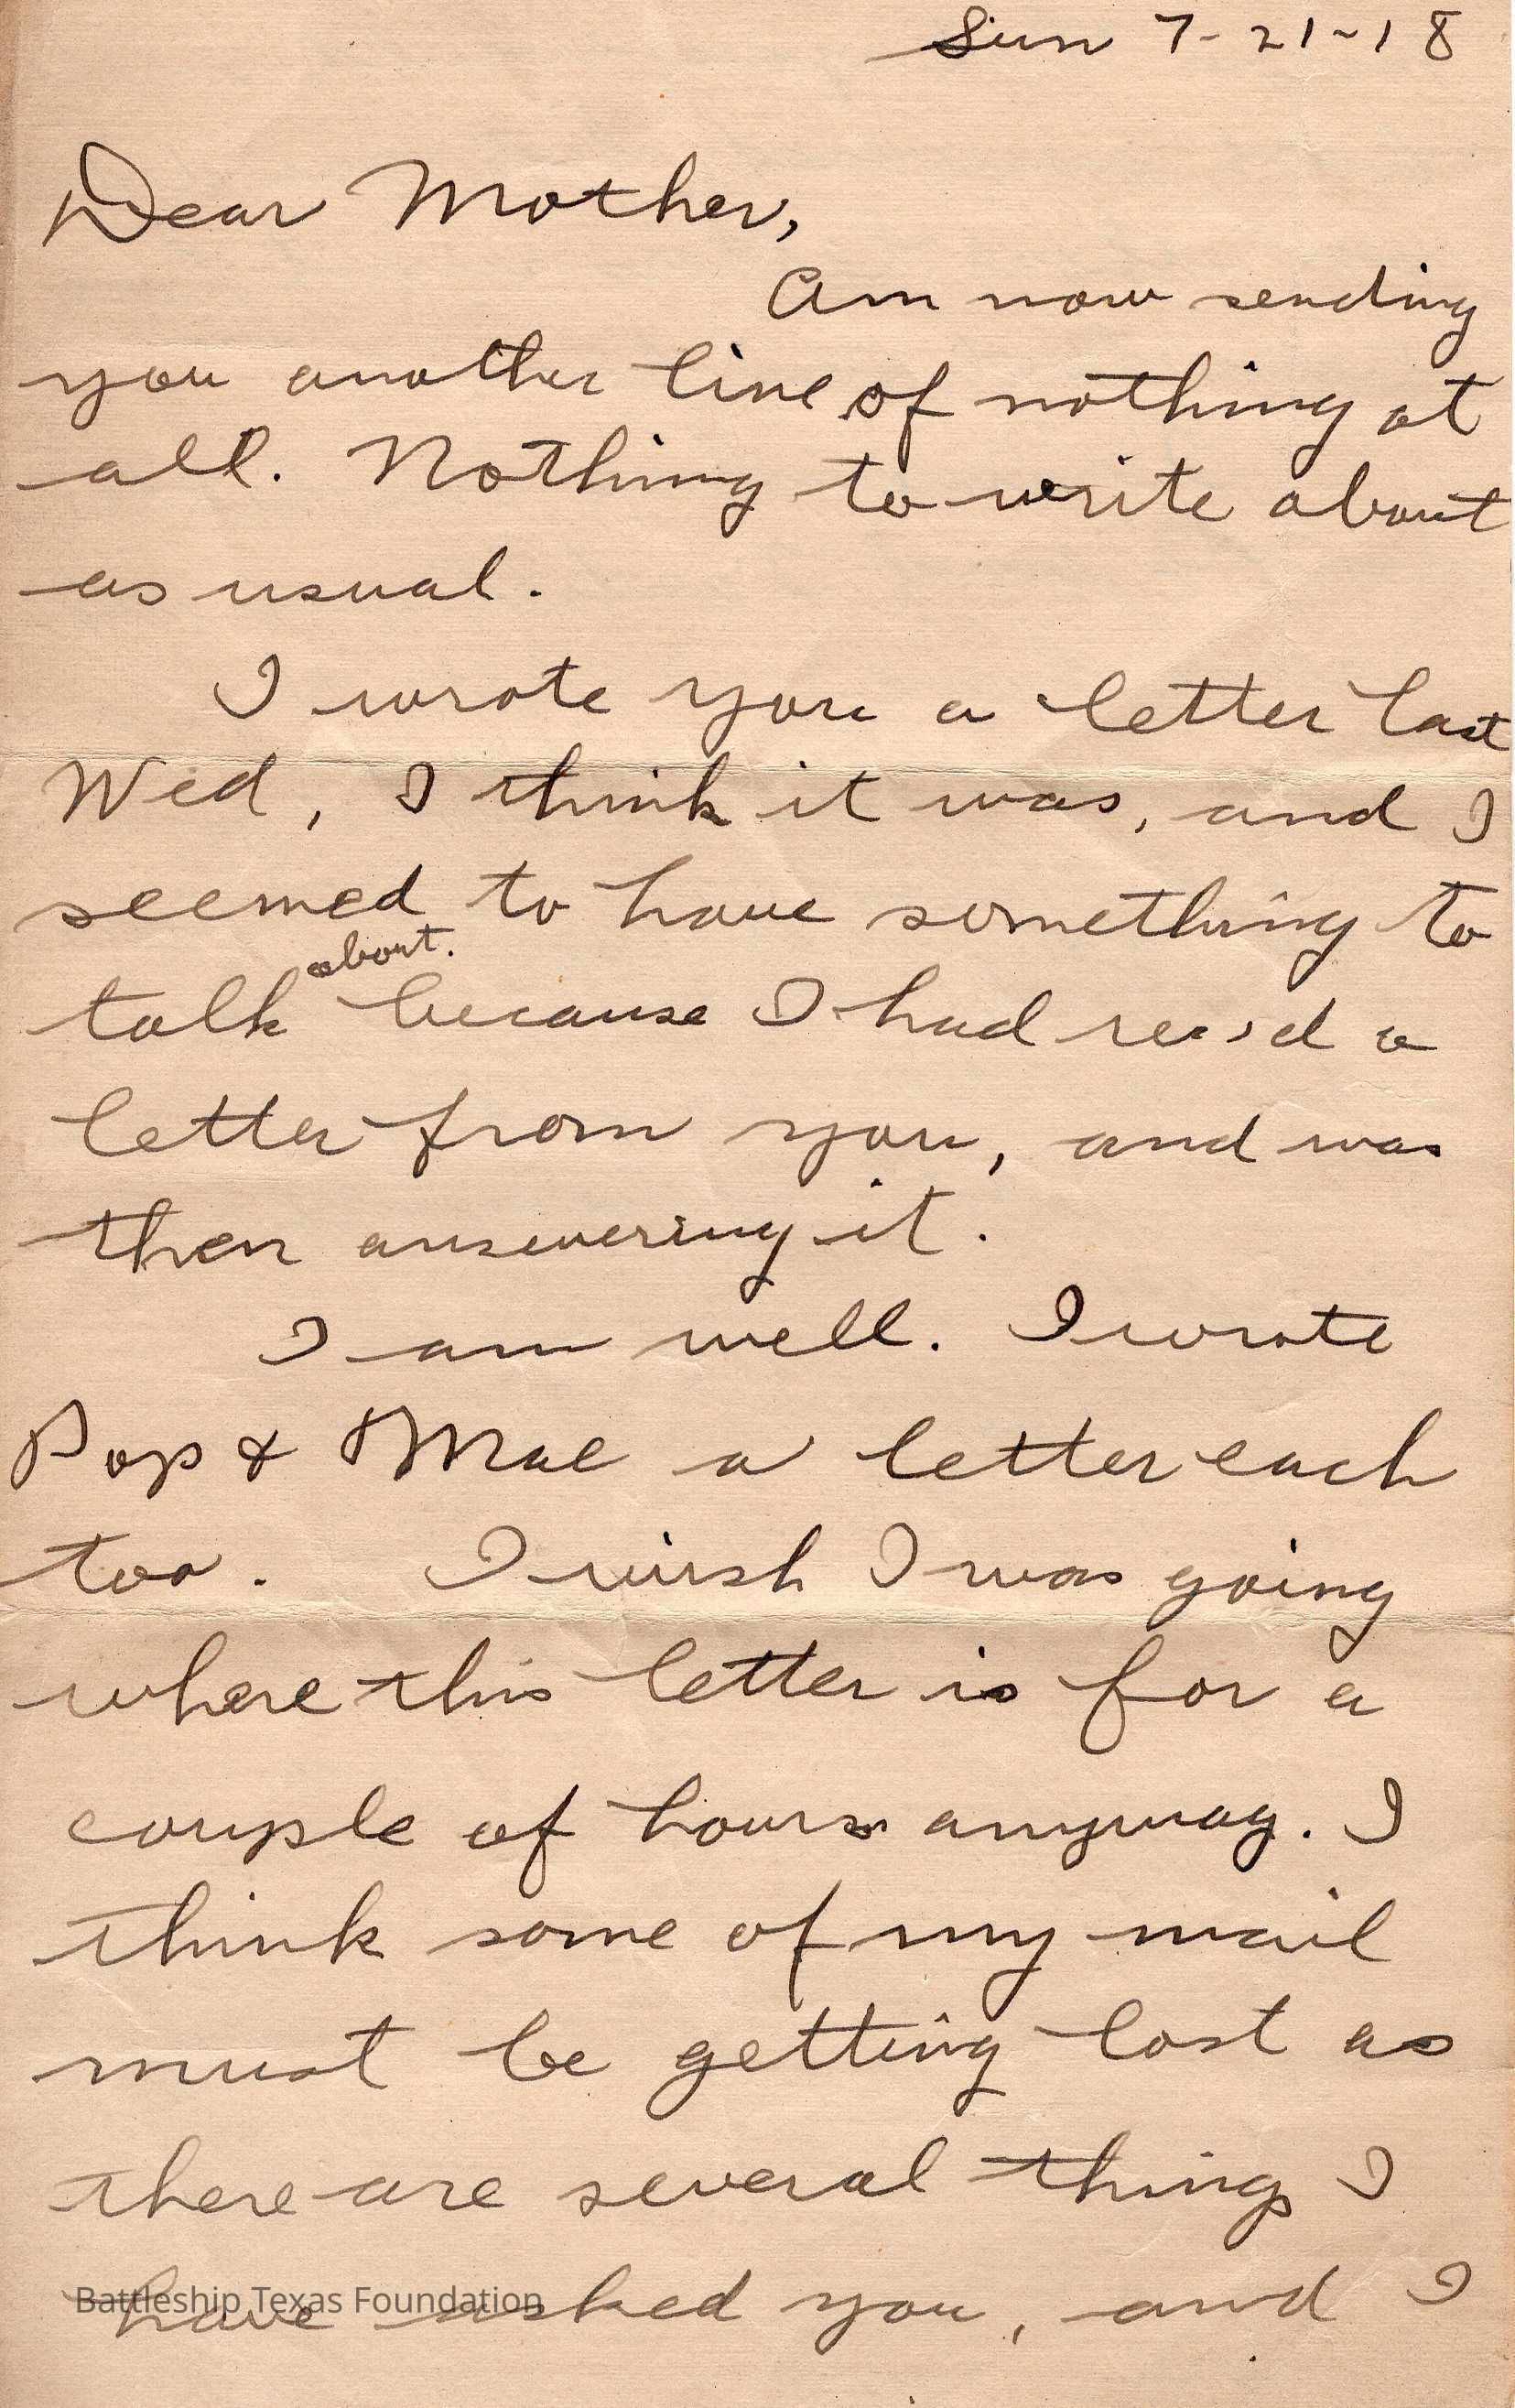 Sun 7-21-18
Dear Mother,
Am now sending
you another line of nothing at
all. Nothing to write about
as usual.
I wrote you a letter last
Wed, I think it was, and I
seemed to have something to
about.
talk because I had rec'd a
letter from you, and was
then answering it.
I am well. I wrote
Pop & Mae a letter each
too. I wish I was going
where this letter is for a
couple of hours anyway. I
think some of my mail
must be getting lost as
there are several things I
have asked you, and I
Battleship Texas Foundation